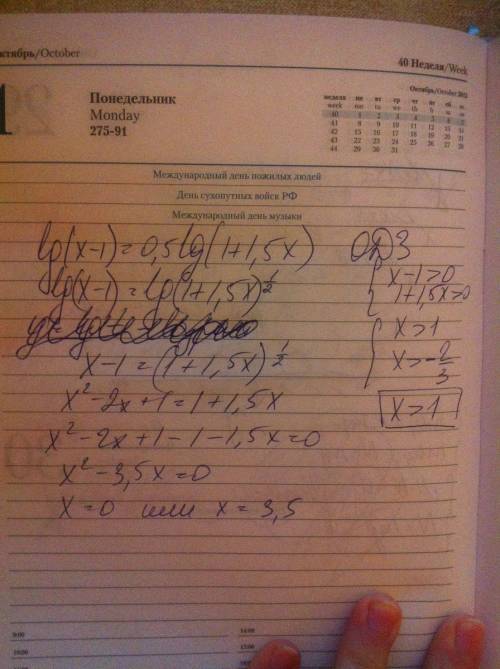 Октябрь/October
40 Неделя/Week
1
Понедельник
Monday
275-91
Октябрь/October
неделя пн вт ср чт пт сб
week mo tu we th
40 1 2 3 4 5 6 7
41 8 9 10 11 12 13 14
42 15 16 17 18 19 20 21
43 22 23 24 25 26 27 28
44 29 30 31
Международный день пожилых людей
День сухопутных войск РФ
Международный день музыки
lg(x-1)=0,5lg(1+1,5x)
ОДЗ
lg(x-1)=lg(1+1,5x)^½
{ x-1>0
1+1,5x>0
x-1=(1+1,5x)^½
{ x>1
x>-2/3
x²-2x+1=1+1,5x
x>1
x²-2x+1-1-1,5x=0
x²-3,5x=0
x=0 или x=3,5
9:00
14:00
15:00